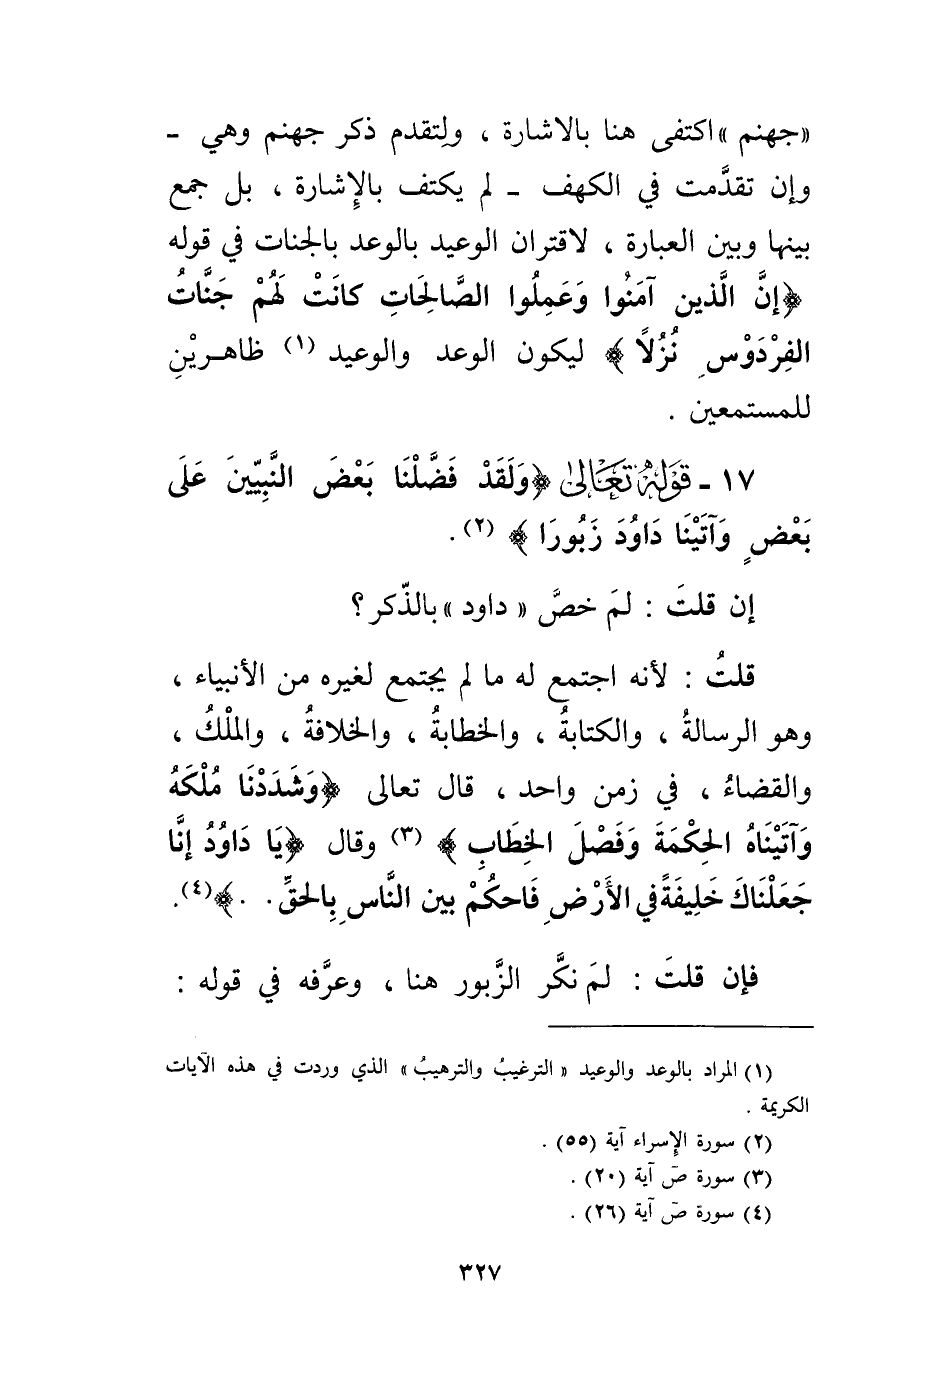 «جهنم» اكتفى هنا بالاشارة ، ولِتقدم ذكر جهنم وهي -
وإن تقدَّمت في الكهف - لم يكتف بالإِشارة ، بل جمع
بينها وبين العبارة ، لاقتران الوعيد بالوعد بالجنات في قوله
﴿إنَّ الَّذين آمَنُوا وَعَمِلُوا الصَّالِحَاتِ كانَتْ لَهُمْ جَنَّاتُ
الفِرْدَوْسِ نُزُلاً﴾ ليكون الوعد والوعيد (١) ظاهـريْنِ
للمستمعين .
١٧ - قَوْلُهُ تَعَالَىٰ ﴿وَلَقَدْ فَضَّلْنَا بَعْضَ النَّبِيّينَ عَلَى
بَعْضٍ وَآتَيْنَا دَاوُدَ زَبُورَا﴾ (٢).
إن قلتَ : لمَ خصَّ «داود» بالذّكر ؟
قلتُ : لأنه اجتمع له ما لم يجتمع لغيره من الأنبياء ،
وهو الرسالةُ ، والكتابةُ ، والخطابةُ ، والخلافةُ ، والملْكُ ،
والقضاءُ ، في زمن واحد ، قال تعالى ﴿وَشَدَدْنَا مُلْكَهُ
وَآتَيْنَاهُ الحِكْمَةَ وَفَصْلَ الخِطَابِ﴾ (٣) وقال ﴿يَا دَاوُدُ إنَّا
جَعَلْنَاكَ خَلِيفَةً في الأَرْضِ فَاحكُمْ بين النَّاسِ بِالحَقِّ . .﴾(٤).
فإن قلتَ : لمَ نكَّر الزَّبور هنا ، وعرَّفه في قوله :
(١) المراد بالوعد والوعيد «الترغيبُ والترهيبُ» الذي وردت في هذه الآيات
الكريمة .
(٢) سورة الإسراء آية (٥٥) .
(٣) سورة صَ آية (٢٠) .
(٤) سورة صَ آية (٢٦) .
٣٢٧